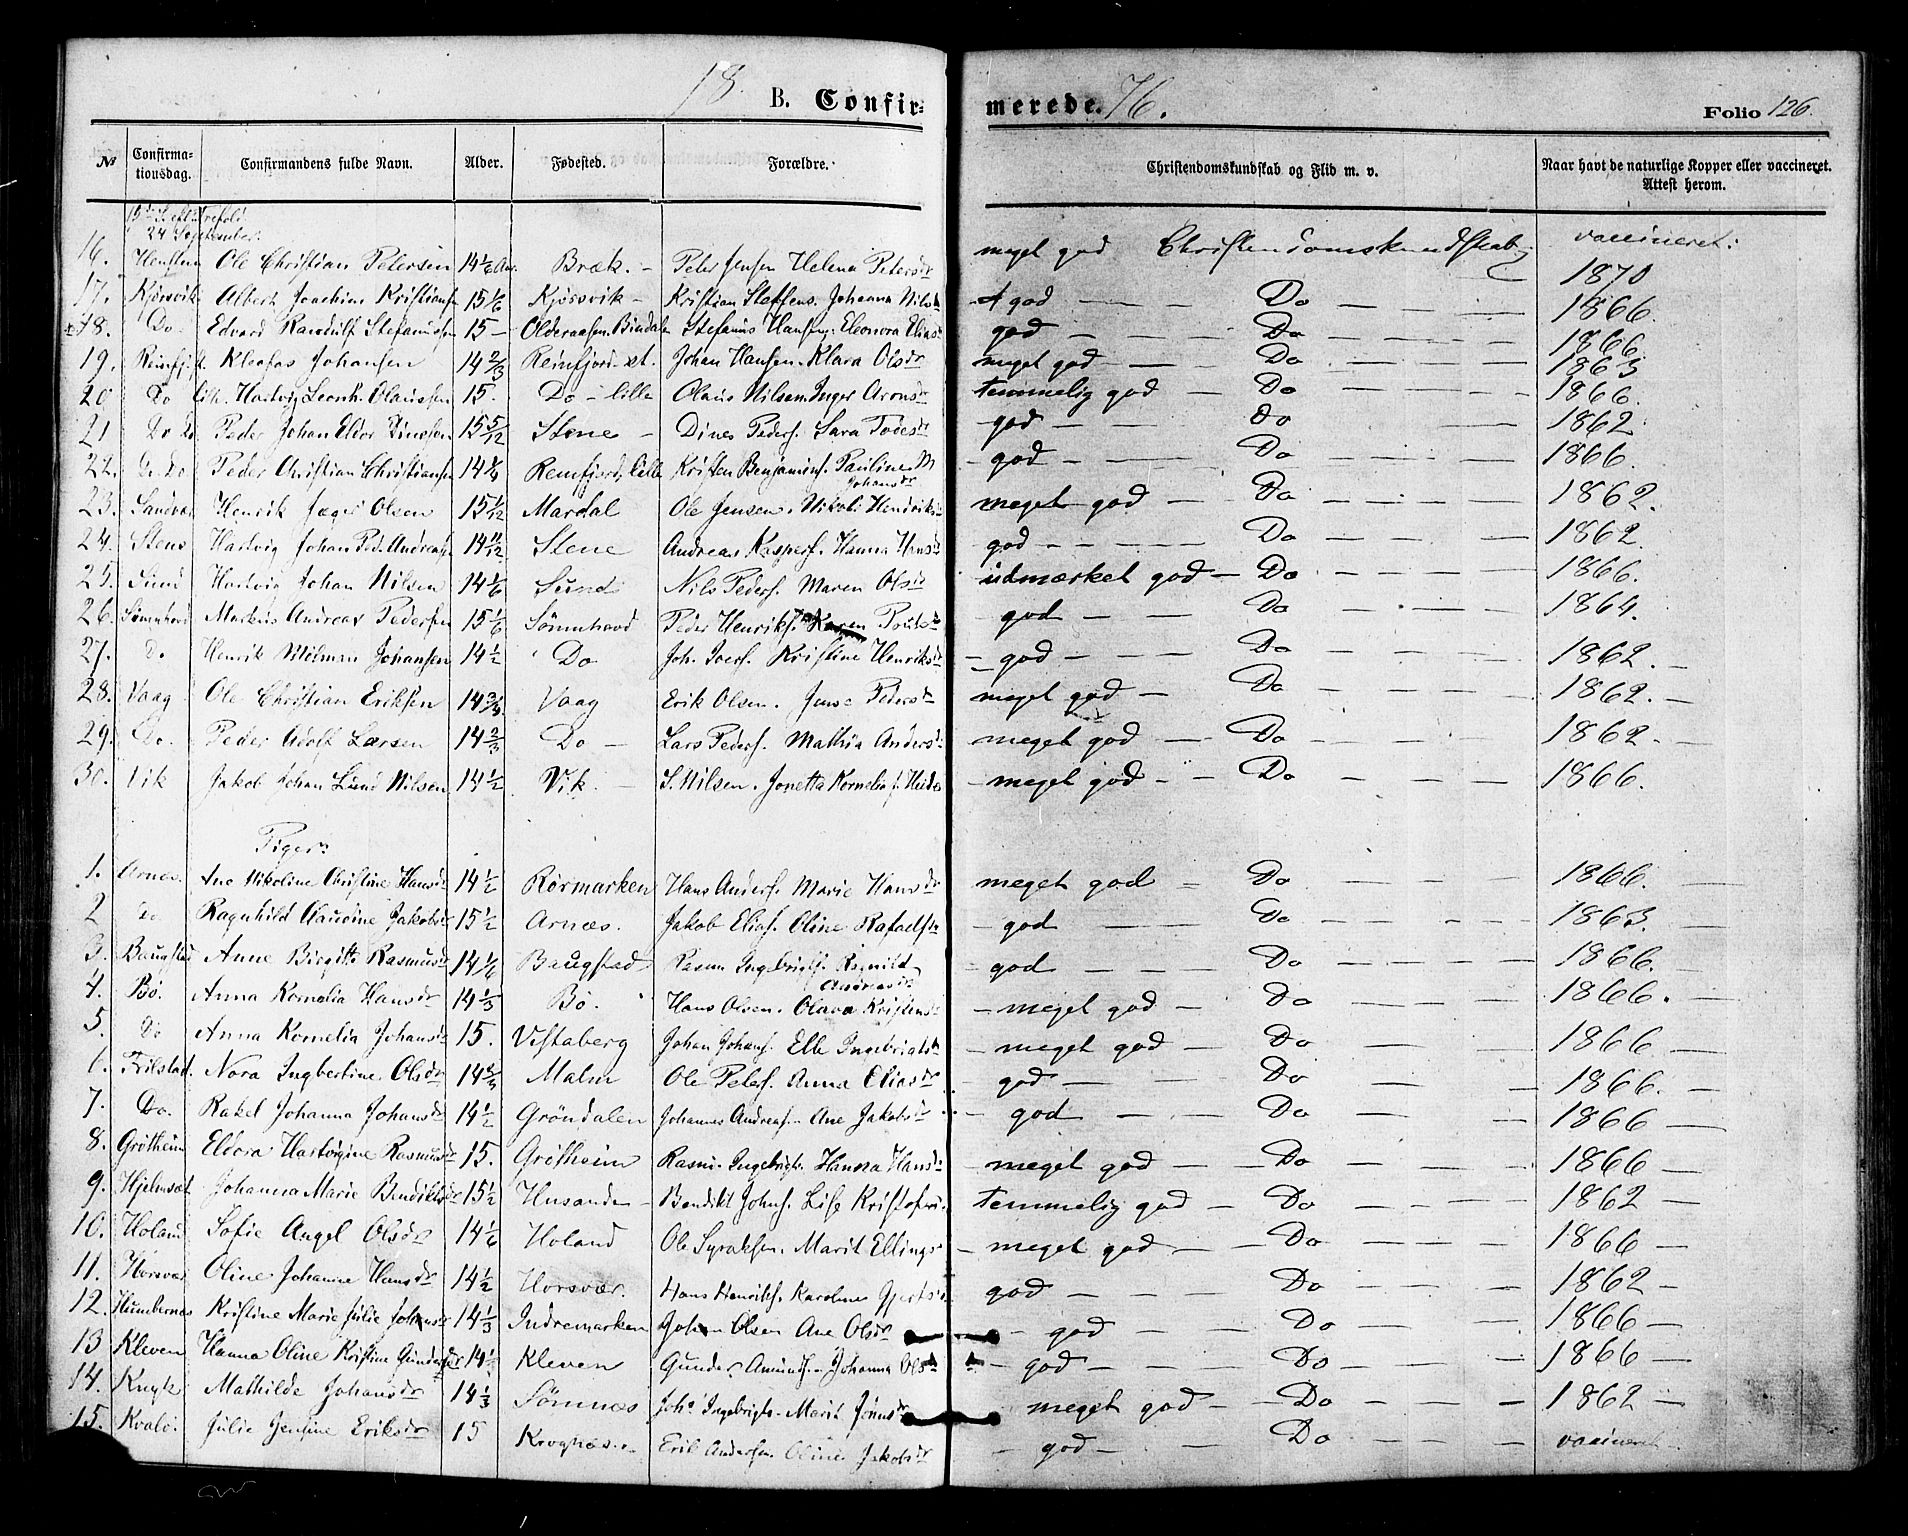 18 B. Confir= merede. 76. Folio 126.
№ Confirma-tionsdag. Confirmandens fulde Navn. Alder. Fødested. Forældre. Christendomskundskab og Flid m. v. Naar havt de naturlige Kopper eller vaccineret. Attest herom.
24 September.
16. Ole Christian Petersen 14 1/6 Aar Bræk. – Peter Jensen Helena Petersdr meget god Christendomskundskab vaccineret: 1870
17. Kjørsvik Albert Joachim Kristiansen 15 1/6 Kjørsvik – Kristian Steffens. Johanna Nilsdr god — Do — 1866.
18. Do. Edvard Randulf Stefanussen 15 – Olderaasen. Bindalen Stefanus Hansen. Eleonora Eliasdr god — Do — 1866.
19. Reinfj. st. Kleofas Johansen 14 2/3 Reinfjord st. Johan Hansen. Klara Olsdr meget god — Do — 1863
20 Do lille. Hartvig Leonh. Olaussen 15. Do – lille Olaus Nilsen Inger Aronsdr temmelig god — Do — 1866.
21 Do Do Peder Johan Elior Dinessen 15 5/12 Stene – Dines Peders. Sara Todesdr god — Do — 1862.
22. Do Peder Christian Christiansen 14 1/4 Reinfjord, lille Kristen Benjamins. Pauline M Johansdr god — Do — 1866.
23. Sandvær Henrik Jæger Olsen 15 1/12 Mardal Ole Jensen. Nikoli Hendriksdr meget god — Do — 1862.
24. Stene Hartvig Johan Ped. Andreasen 14 11/12 Stene Andreas Kaspers. Hanna Hansdr god — Do — 1862.
25. Sund Hartvig Johan Nilsen 14 1/6 Sund Nils Peders. Maren Olsdr udmærket god — Do — 1866.
26. Sømnhovd Markus Andreas Pedersen 15 1/6 Sömnhovd Peder Henriks. Karen Poulsdr god — Do — 1864.
27. Do Henrik Milman Johansen 14 1/2 Do Joh. Ivers. Kristine Henriksdr god — Do — 1862. —
28. Vaag Ole Christian Eriksen 14 3/4 Vaag Erik Olsen. Pedersdr meget god — Do — 1862. —
29. Do. Peder Adolf Larsen 14 2/3 Do – Lars Peders. Mathia Andersdr meget god — Do — 1862. —
30. Vik Jakob Johan Lund Nilsen 14 1/2 Vik. – S. Nilsen. Jonetta Kornelia f. Heide meget god — Do — 1866.
Piger
1. Arnes. Ane Nikoline Christine Hansdr 14 1/2 Rörmarken Hans Anders. Marie Hansdr meget god — Do — 1866. —
2 Do Ragnhild Claudine Jakobsdr 15 1/2 Arnæs. Jakob Elias. Oline Rafaelsdr god — Do — 1863. —
3. Baugstad Anne Birgitte Rasmusdr 14 1/6 Baugstad Rasm Ingebrigts. Ragnild Andreasdr god — Do — 1866. —
4. Bö. Anna Kornelia Hansdr 14 1/3 Bö. Hans Olsen. Olava Kristensdr meget god — Do — 1866. —
5. Do Anna Kornelia Johansdr 15. Vistaberg Johan Johans. Elle Ingebrigtsdr meget god — Do — 1866. —
6. Filstad. Nora Ingbertine Olsdr 14 3/4 Malm Ole Peters. Anna Eliasdr god — Do — 1866. —
7. Do. Rakel Johanna Johansdr 14 1/2 Gröndalen Johannes Andreas. – Ane Jakobsdr god — Do — 1866 —
8. Grötheim Eldora Hartvigine Rasmusdr 15. Grötheim Rasm. Ingebrigts. Hanna Hansdr meget god — Do — 1866 —
9. Hjelmset Johanna Marie Bendiktsdr 15 1/2 Husander – Bendikt Johns. Lise Kristofersdr temmelig god — Do — 1862 —
10. Holand Sofie Angel Olsdr 14 1/6 Holand Ole Syraksen. Marit Ellingsdr meget god — Do — 1866 —
11. Horsvær Oline Johanne Hansdr 14 1/2 Horsvær. Hans Henriks. Karoline Gjertsdr god — Do — 1862 —
12. Humbernes Kristine Marie Julie Johansdr 14 1/3 Indremarken Johan Olsen Ane Olsdr god — Do — 1866 —
13 Kleven Hanna Oline Kristine Gundersdr 14 1/2 Kleven Gunder Amunds. – Johanna Olsdr god — Do — 1866 —
14. Knyk Mathilde Johansdr 14 1/3 Sömnes Joh. Ingebrigts. Marit Jönsdr meget god — Do — 1862 —
15. Kvalö. Julie Jensine Eriksdr 15 Krognæs. Erik Andersen. Oline Jakobsdr god — Do — vaccineret.